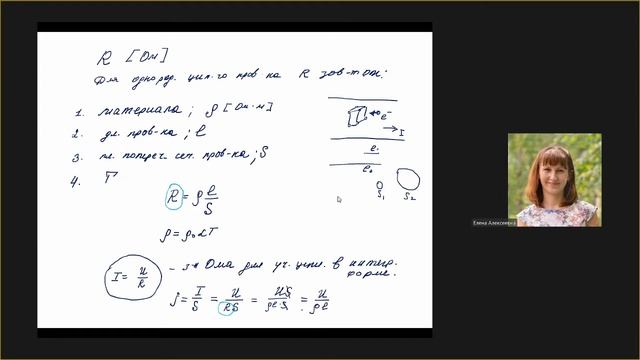 R [Ом]
Для однород. цил-го пров-ка R зав-т от:
1. материала; ρ [Ом·м]
2. дл. пров-ка; l
3. пл. попереч. сеч. пров-ка; S
4. T
e⁻
I
S₁ S₂
R = ρ l/S
ρ = ρ₀αT
I = U/R - з-н Ома для уч. цепи в интегр. форме.
j = I/S = U/RS = US/ρlS = U/ρl
Елена Алексеевна